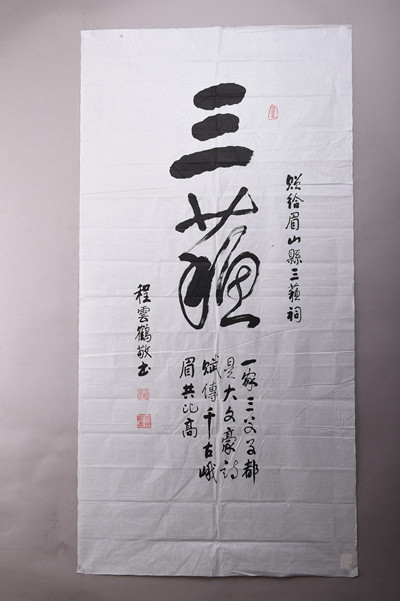 赠给眉山縣三蘇祠
三蘇
一家三父子都
是大文豪詩
賦傳千古峨
眉共比高
程雲鶴敬书